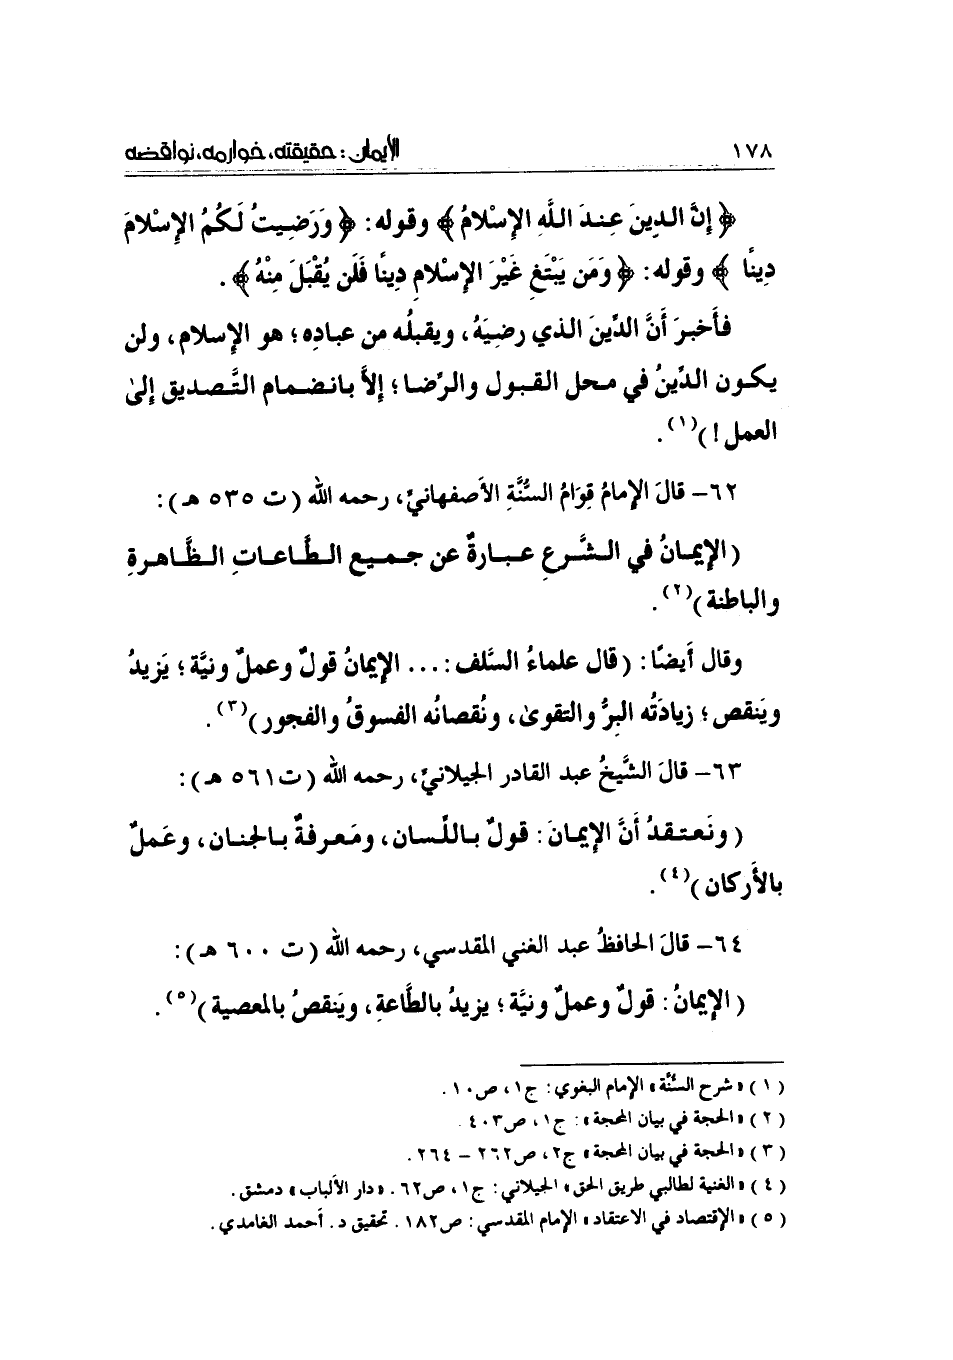 ١٧٨ الإيمان: حقيقته، خوارمه، نواقضه
﴿إِنَّ الدِينَ عِندَ اللَّهِ الإِسْلامُ﴾ وقوله: ﴿وَرَضِيتُ لَكُمُ الإِسْلامَ
دِينًا﴾ وقوله: ﴿وَمَن يَبْتَغِ غَيْرَ الإِسْلامِ دِينًا فَلَن يُقْبَلَ مِنْهُ﴾.
فأَخبرَ أَنَّ الدِّينَ الذي رضيَهُ، ويقبلُه من عباده؛ هو الإسلام، ولن
يكون الدِّينُ في محل القبول والرِّضا؛ إلاَّ بانضمام التَّصديق إلىٰ
العمل!)(١).
٦٢- قالَ الإمامُ قِوَامُ السُّنَّةِ الأَصفهانيّ، رحمه الله (ت ٥٣٥ هـ):
(الإيمانُ في الشَّرعِ عبارةٌ عن جميع الطَّاعاتِ الظَّاهرةِ
والباطنة)(٢).
وقال أَيضًا: (قال علماءُ السَّلف:... الإيمانُ قولٌ وعملٌ ونيَّة؛ يَزيدُ
ويَنقص؛ زيادَتُه البرُّ والتقوىٰ، ونُقصانُه الفسوقُ والفجور)(٣).
٦٣- قالَ الشَّيخُ عبد القادر الجيلانيّ، رحمه الله (ت٥٦١ هـ):
(ونَعتقدُ أَنَّ الإيمانَ: قولٌ باللِّسان، ومَعرفةٌ بالجنان، وعَملٌ
بالأَركان)(٤).
٦٤- قالَ الحافظُ عبد الغني المقدسي، رحمه الله (ت ٦٠٠ هـ):
(الإيمانُ: قولٌ وعملٌ ونيَّة؛ يزيدُ بالطَّاعةِ، ويَنقصُ بالمعصية)(٥).
(١) «شرح السُّنَّة» الإمام البغوي: ج١، ص١٠.
(٢) «الحجة في بيان المحجة»: ج١، ص٤٠٣.
(٣) «الحجة في بيان المحجة» ج٢، ص٢٦٢ – ٢٦٤.
(٤) «الغنية لطالبي طريق الحق» الجيلاني: ج١، ص٦٢. «دار الألباب» دمشق.
(٥) «الإقتصاد في الاعتقاد» الإمام المقدسي: ص١٨٢. تحقيق د. أحمد الغامدي.